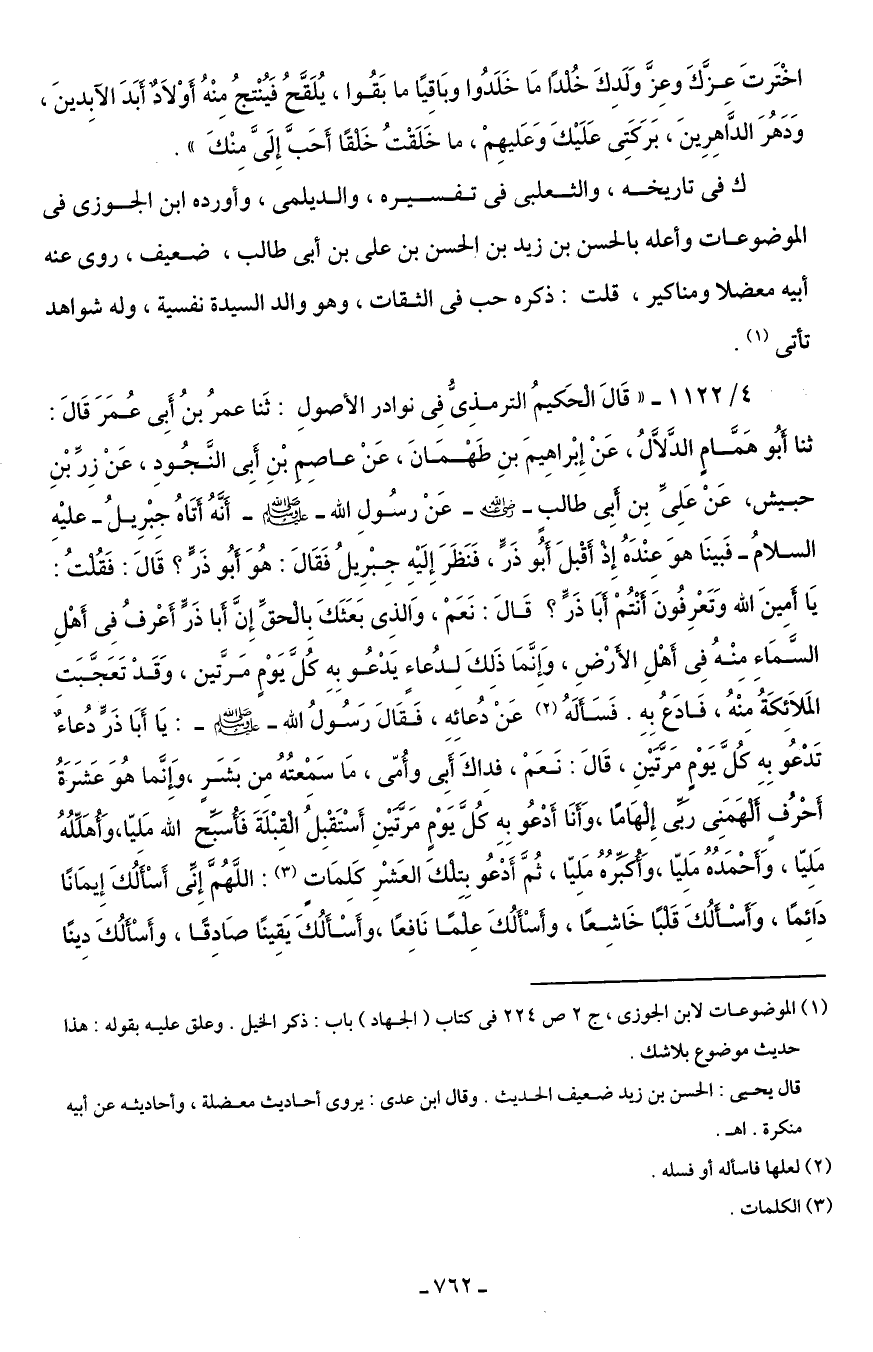 اخْتَرتَ عِـزَّكَ وعِزَّ وَلَدِكَ خُلْدًا مَا خَلَدُوا وبَاقِيًا ما بَقُـوا ، يُلَقَّحُ فَيُنْتجُ مِنْهُ أَوْلَادٌ أَبَدَ الآبِدينَ ،
وَدَهْرَ الدَّاهِرِينَ ، بَرَكَتِى عَلَيْكَ وَعَليهِمْ ، ما خَلَقْتُ خَلْقًا أحَبَّ إِلَىَّ مِنْكَ » .
ك فى تاريخـه ، والثـعلبى فى تـفـسـيـره ، والـديلمى ، وأورده ابن الجـوزى فى
الموضوعـات وأعله بالحسن بن زيد بن الحسن بن على بن أبى طالب ، ضـعيف ، روى عنه
أبيه معضلا ومناكير ، قلت : ذكره حب فى الثـقات ، وهو والد السيدة نفسية ، وله شواهد
تأتى (١) .
٤/ ١١٢٢ ـ « قَالَ الْحَكيمُ الترمـذىُّ فِى نوادر الأصول : ثَنا عمرُ بنُ أبى عُـمَرَ قَالَ :
ثنا أبُو هَمَّـامٍ الدَّلاَّلُ ، عَنْ إِبْراهِيمَ بنِ طَهْـمَـانَ ، عَنْ عـاصِمِ بْنِ أبى النَّـجُـودِ ، عَنْ زِرِّ بْنِ
حبـيش، عَنْ عَلىِّ بنِ أبى طالبٍ ـ رضي الله عنه ـ عَنْ رسـُولِ الله ـ صلى الله عليه وسلم ـ أَنَّهُ أَتَاهُ جِبْرِيـلُ ـ عليْهِ
السـلامُ ـ فَبينَا هوَ عِنْدَهُ إذ أقْبلَ أَبُو ذَرٍّ ، فَنَظَرَ إِلَيْهِ جِـبْرِيلُ فقَالَ : هُوَ أَبُو ذَرٍّ ؟ قَالَ : فَقُلْتُ :
يَا أَمِينَ الله وَتَعْرِفُونَ أَنْتُمْ أَبَا ذَرٍّ ؟ قَـالَ : نَعَمْ ، وَالذِى بَعَثَكَ بِالْحقِّ إنَّ أبا ذَرٍّ أَعْرفُ فِى أهْلِ
السَّـمَاءِ مِنْـهُ فِى أَهْلِ الأرْضِ ، وَإِنَّمَا ذَلِكَ لِـدُعاءٍ يَدْعُـو بهِ كُلَّ يَوْمٍ مَـرَّتَينِ ، وَقَـدْ تَعَجَّـبَت
الَملائِكَةُ مِنْـهُ ، فَـادعُ بِهِ . فَسَـأَلَهُ (٢) عَنْ دُعائِهِ ، فَـقَالَ رَسـُولُ الله ـ صلى الله عليه وسلم ـ : يَا أَبَا ذَرٍّ دُعاءٌ
تَدْعُو بِهِ كُلَّ يَوْمٍ مَرَّتَيْنِ ، قَالَ : نَـعَمْ ، فداكَ أبِى وأُمِّى ، مَا سَمِعْتُهُ مِن بَشَـرٍ ،وَإِنَّما هُوَ عَشَرَةُ
أَحْرُفٍ أَلْهَمَنِى رَبِّى إِلهَامًا ،وَأَنَا أَدْعُو بِهِ كُلَّ يَوْمٍ مَرَّتَيْنِ أَسْتَقْبِلُ الْقِبْلَةَ فَأُسَبِّحُ الله مَلِيّا،وَأُهَلِّلُهُ
مَلِيّا ، وَأَحْمَدُهُ مَلِيّا ،وَأُكَبِّرُهُ مَلِيّا ، ثُمَّ أَدْعُو بِتِلْكَ العَشْرِ كَلِمَاتٍ (٣) : اللَّهُمَّ إِنِّى أَسْأَلُكَ إيمَانًا
دَائِمًا ، وَأَسْـأَلُكَ قَلْبًا خَاشِـعًا ، وأَسْأَلُكَ عِلْمًـا نَافِعًا ،وأَسْـأَلُكَ يَقِينًا صَادِقًـا ، وأَسْأَلُكَ دِينًا
(١) الموضوعـات لابن الجوزى ، ج ٢ ص ٢٢٤ فى كتاب ( الجـهاد ) باب : ذكر الخيل . وعلق عليـه بقوله : هذا
حديث موضوع بلاشك .
قال يحـيى : الحسن بن زيد ضـعيف الحـديث . وقال ابن عدى : يروى أحـاديث معـضلة ، وأحاديثـه عن أبيه
منكرة . اهـ .
(٢) لعلها فاسأله أو فسله .
(٣) الكلمات .
ـ ٧٦٢ ـ